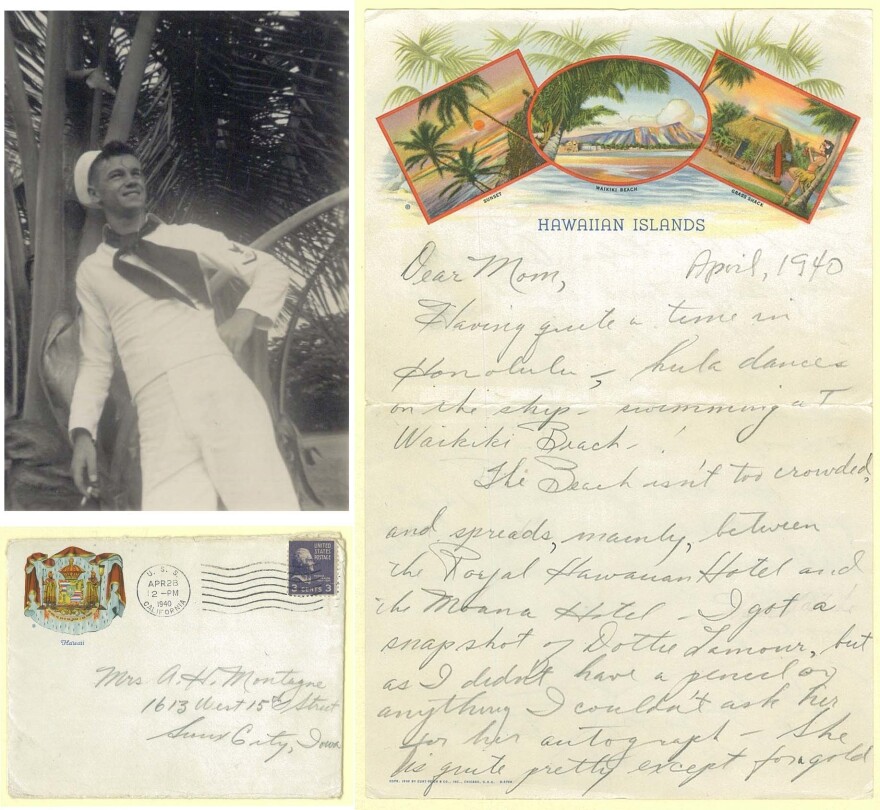 SUNSET
WAIKIKI BEACH
GRASS SHACK
HAWAIIAN ISLANDS
Dear Mom,
April, 1940
Having quite a time in
Honolulu – hula dances
on the ship – swimming at
Waikiki Beach – !
The Beach isn't too crowded,
and spreads, mainly, between
the Royal Hawaiian Hotel and
the Moana Hotel – I got a
snapshot of Dottie Lamour, but
as I didn't have a pencil or
anything I couldn't ask her
for her autograph – She
is quite pretty except for gold
Hawaii
U. S. S.
APR 28
2 - PM
1940
CALIFORNIA
UNITED
STATES
POSTAGE
3 CENTS 3
Mrs A. H. Montagne
1613 West 15th Street
Sioux City, Iowa